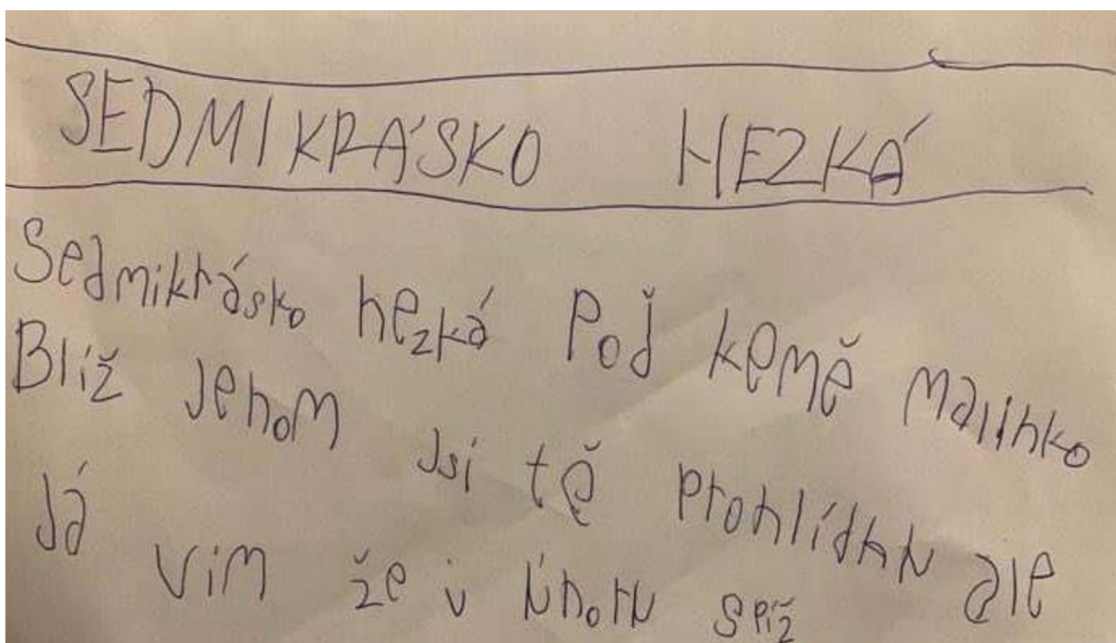 SEDMIKRÁSKO HEZKÁ
Sedmikrásko hezká Poď kemě malinko
Blíž Jenom Jsi tě prohlídnu ale
Já vim že v únoru spíž